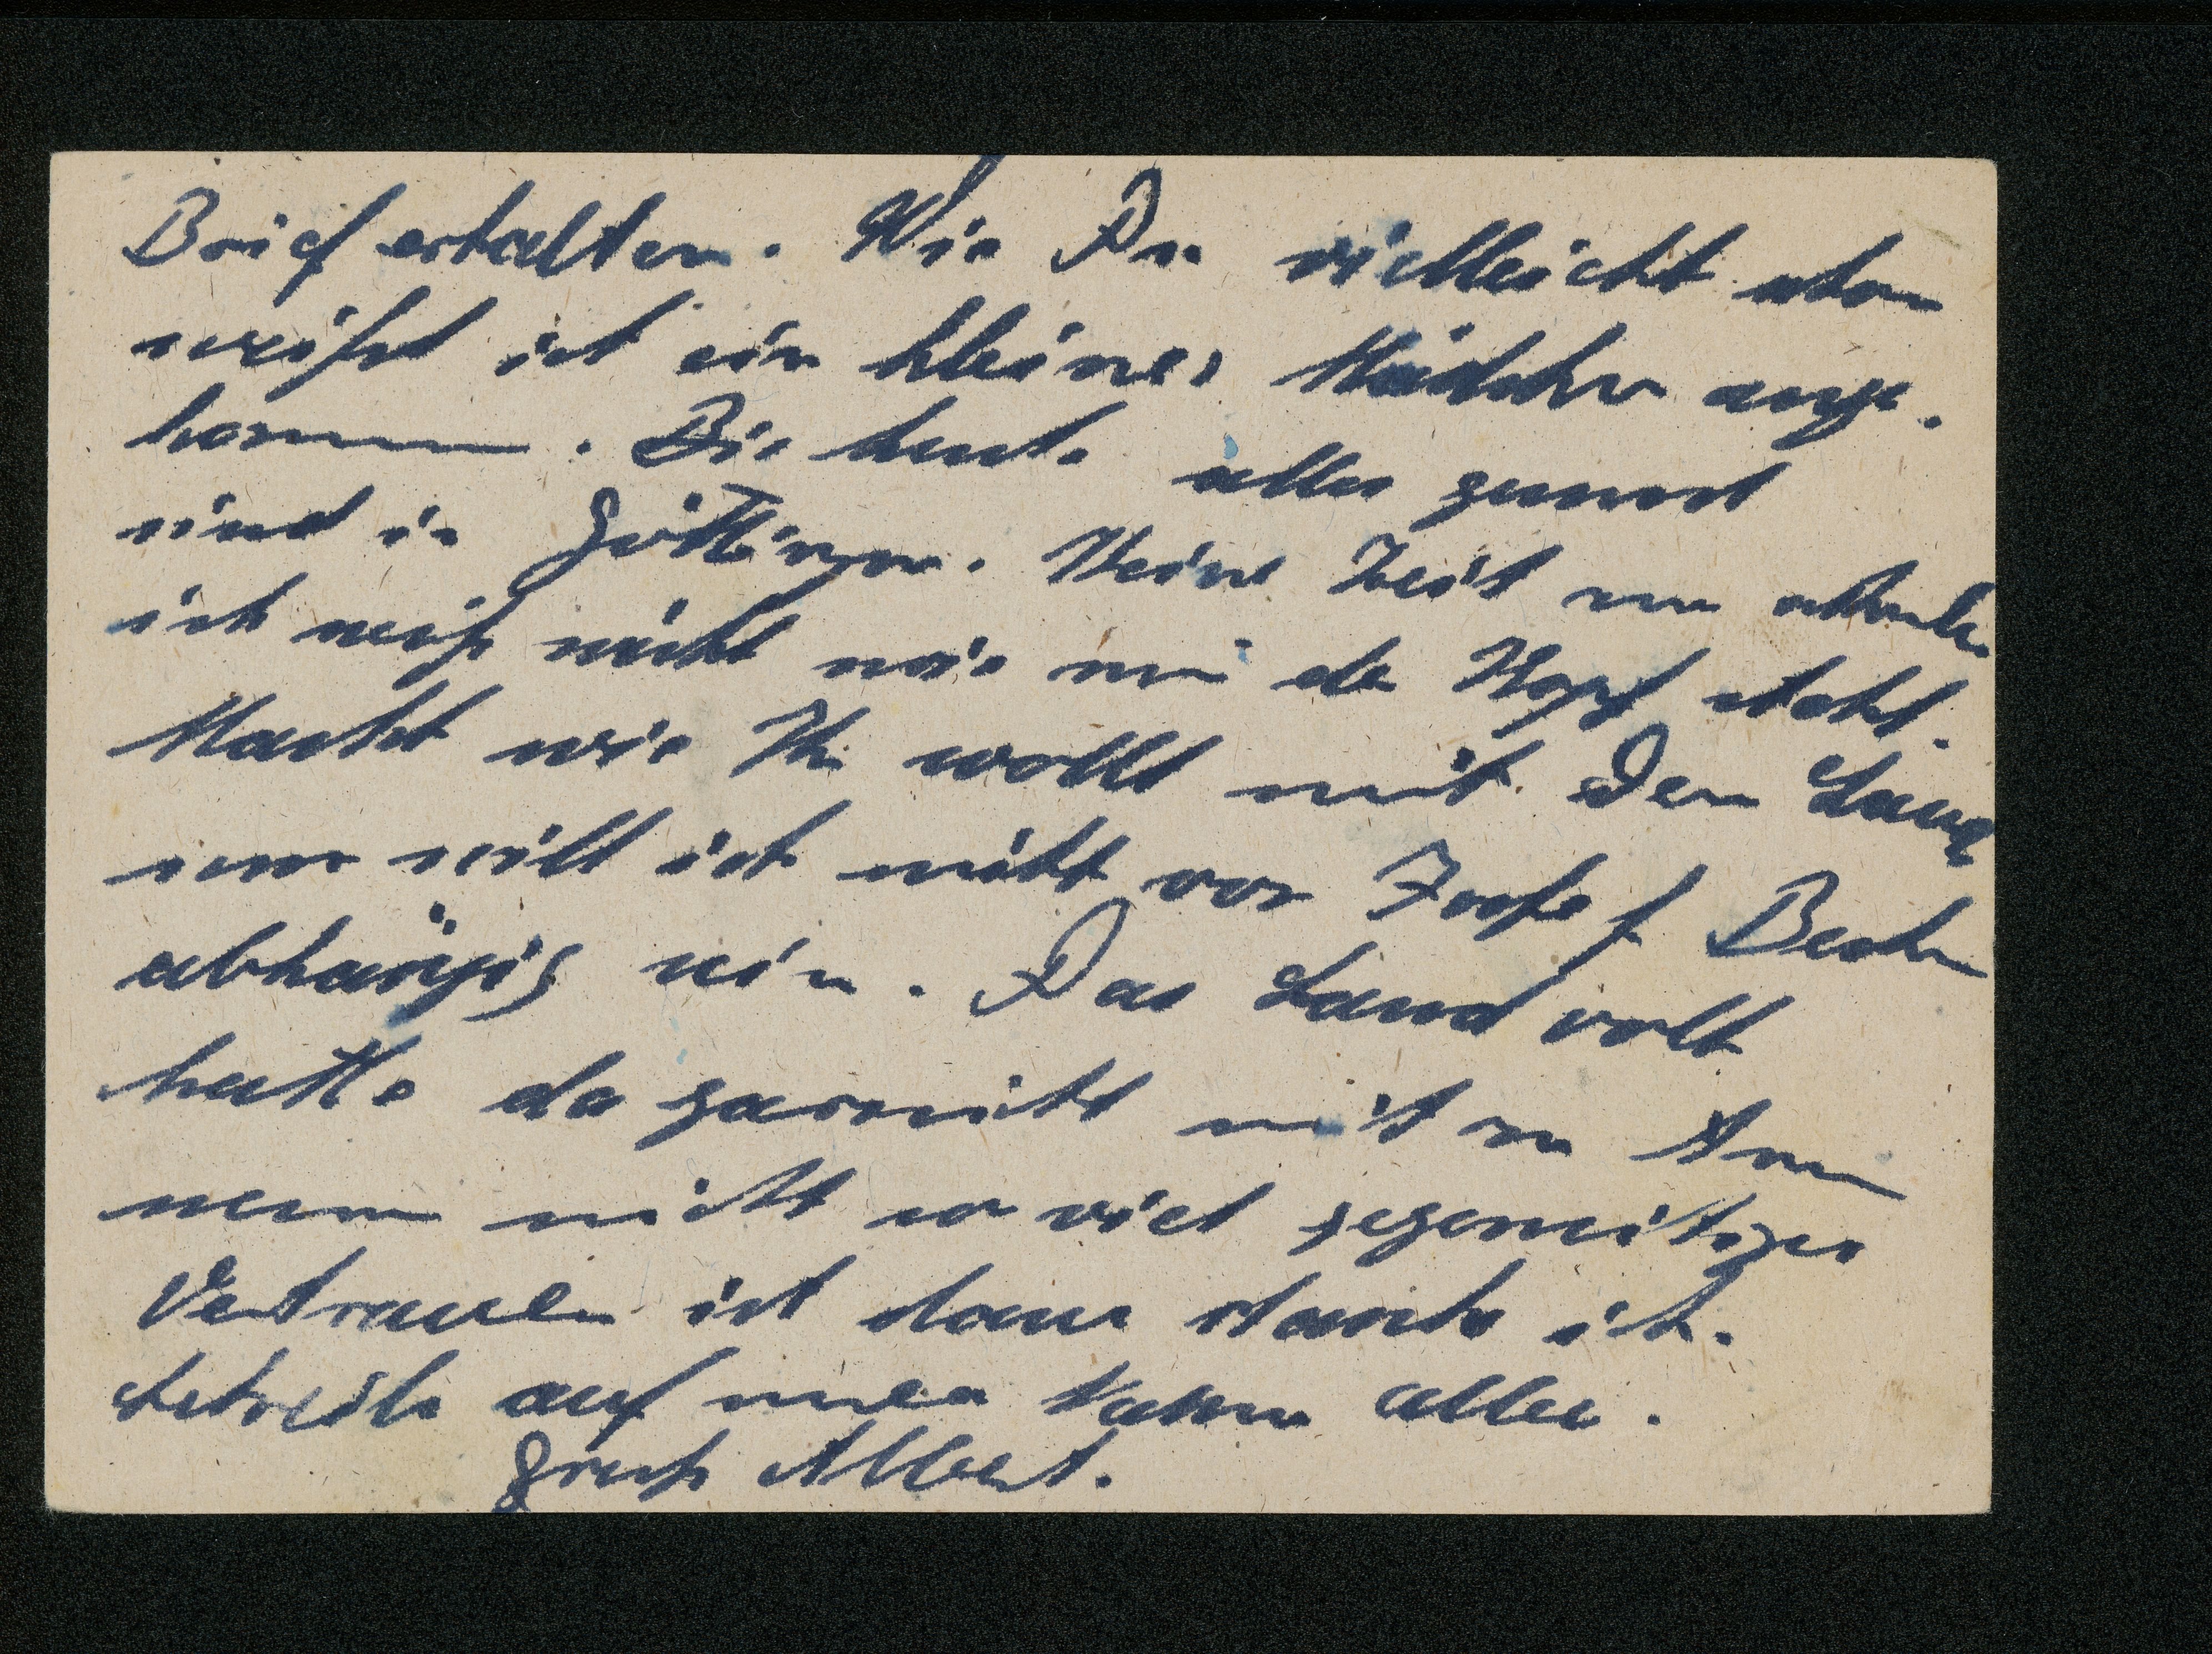 Brief erhalten. Wie Du vielleicht schon
weißt ist ein kleines Mädchen ange-
kommen. Bis heute alles gesund
sind in Göttingen. Keine Zeit zum schreiben
ich weiß nicht wie mir der Kopf steht.
Macht wie Ihr wollt mit dem Land
nur will ich nicht von Josef
abhängig sein. Das Land
hatte da garnicht mit zu tun
wenn nicht so viel gegenseitiges
Vertrauen ist dann
schreibe auf alles.
Gruß Albert.